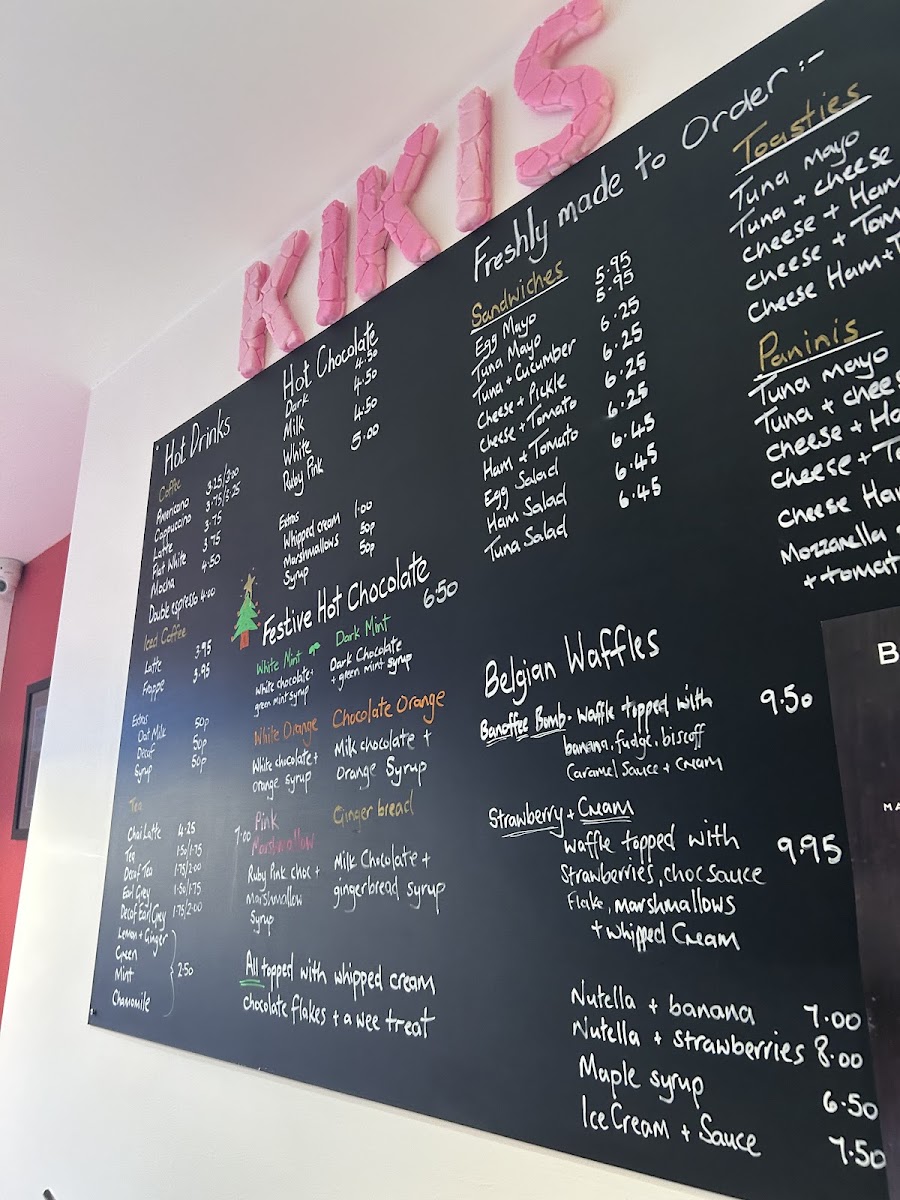 KIKIS
Hot Drinks
Coffee
Americano 3.25/3.00
Cappuccino 3.75/5.25
Latte 3.75
Flat White 3.75
Mocha 4.50
Double espresso 4.00
Iced Coffee
Latte 3.95
Frappe 3.95
Extras
Oat Milk 50p
Decaf 50p
Syrup 50p
Tea
Chai Latte 4.25
Tea 1.50/1.75
Decaf Tea 1.75/2.00
Earl Grey 1.50/1.75
Decaf Earl Grey 1.75/2.00
Lemon + Ginger
Green
Mint 2.50
Chamomile
Hot Chocolate
Dark 4.50
Milk 4.50
White 4.50
Ruby Pink 5.00
Extras
Whipped cream 1.00
Marshmallows 50p
Syrup 50p
Festive Hot Chocolate 6.50
White Mint
White chocolate+
green mint syrup
Dark Mint
Dark Chocolate
+ green mint syrup
White Orange
White chocolate+
orange syrup
Chocolate Orange
Milk chocolate +
Orange Syrup
7.00 Pink
Marshmallow
Ruby Pink choc +
Marshmallow
Syrup
Gingerbread
Milk Chocolate +
gingerbread syrup
All topped with whipped cream
chocolate flakes + a wee treat
Freshly made to Order :-
Sandwiches
Egg Mayo 5.95
Tuna Mayo 5.95
Tuna + Cucumber 6.25
Cheese + Pickle 6.25
Cheese + Tomato 6.25
Ham + Tomato 6.25
Egg Salad 6.45
Ham Salad 6.45
Tuna Salad 6.45
Toasties
Tuna mayo
Tuna + cheese
cheese + Ham
cheese + Tom
Cheese Ham+T
Paninis
Tuna mayo
Tuna + chees
cheese + Ha
cheese + To
cheese Ha
Mozzarella
+ tomat
Belgian Waffles
Banoffee Bomb. Waffle topped with 9.50
banana, fudge, biscoff
Caramel Sauce + cream
Strawberry + Cream
Waffle topped with 9.95
Strawberries, choc sauce
Flake, Marshmallows
+ whipped Cream
Nutella + banana 7.00
Nutella + strawberries 8.00
Maple syrup 6.50
Ice Cream + Sauce 7.50
B
MA